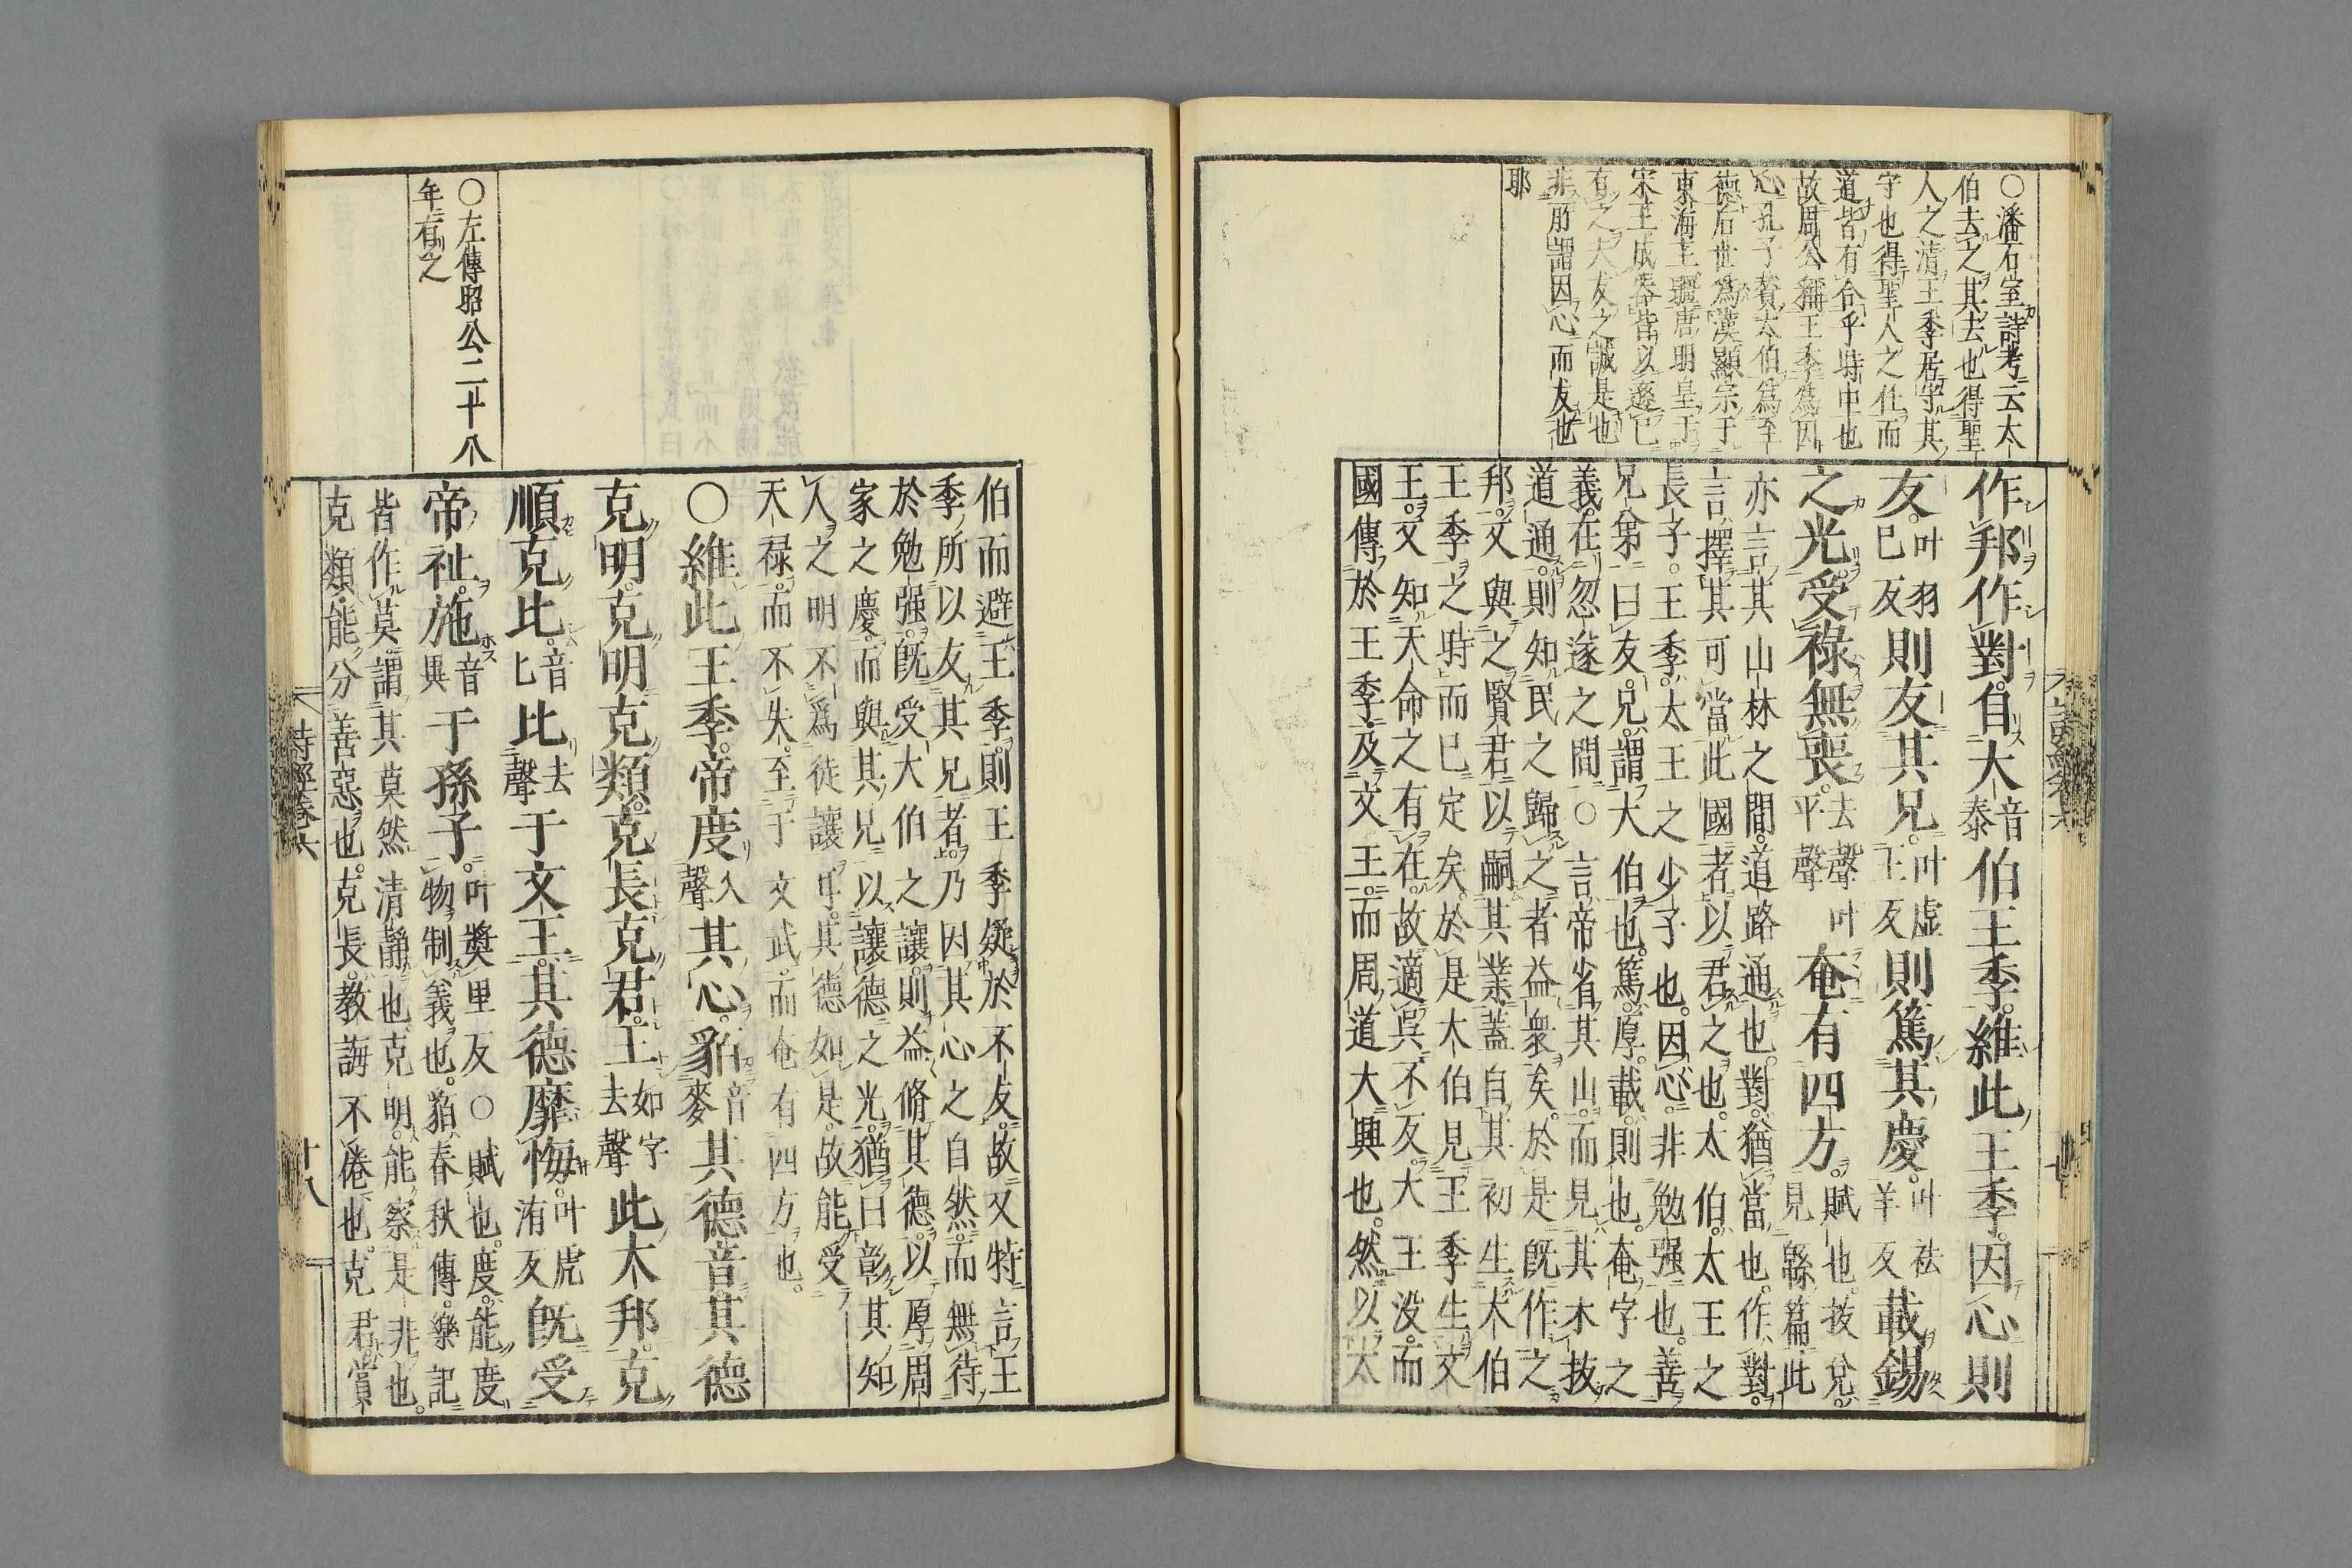 ○潘石室詩考云太
伯去之其去也得聖
人之清王季居守其
守也得聖人之任而
道皆有合乎時中也
故周公稱王季爲因
心孔子贊太伯爲至
德后世爲漢顯宗于
東海王彊唐明皇于
宋王成器皆以遜已
有之大友之誠是也
非所謂因心而友也
耶
作邦作對自大音泰伯王季維此王季因心則
友叶羽已反則友其兄叶虛王反則篤其慶叶祛羊反載錫
之光受祿無喪去聲叶平聲奄有四方賦也拔兌見緜篇此
亦言其山林之間道路通也對猶當也作對
言擇其可當此國者以君之也太伯太王之
長子王季太王之少子也因心非勉强也善
兄弟曰友兄謂大伯也篤厚載則也奄字之
義在忽遂之間○言帝省其山而見其木拔
道通則知民之歸之者益衆矣於是旣作之
邦又與之賢君以嗣其業蓋自其初生太伯
王季之時而已定矣於是太伯見王季生文
王又知天命之有在故適吳不反大王沒而
國傳於王季及文王而周道大興也然以太
伯而避王季則王季疑於不友故又特言王
季所以友其兄者乃因其心之自然而無待
於勉强旣受大伯之讓則益脩其德以厚周
家之慶而與其兄以讓德之光猶曰彰其知
人之明不爲徒讓耳其德如是故能受
天祿而不失至于文武而奄有四方也
○維此王季帝度入聲其心貊音麥其德音其德
克明克明克類克長克君王如字去聲此大邦克
順克比音匕比去聲于文王其德靡悔叶虎洧反旣受
帝祉施音異于孫子叶奬里反○賦也度能度物制義也貊春秋傳樂記
皆作莫謂其莫然清靜也克明能察是非也
克類能分善惡也克長敎誨不倦也克君賞
○左傳昭公二十八
年有之
詩經卷六
十八